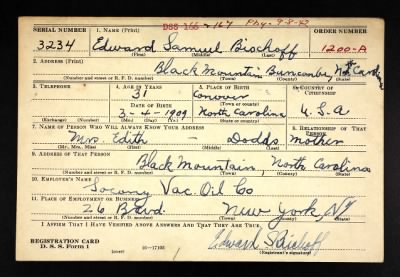 DSS 166 - 167 Phy - 9-8-42
SERIAL NUMBER 1. NAME (Print) ORDER NUMBER
3234 Edward Samuel Bischoff 1200-A
(First) (Middle) (Last)
2. ADDRESS (Print)
Black Mountain Buncombe North Carolina
(Number and street or R. F. D. number) (Town) (County) (State)
3. TELEPHONE 4. AGE IN YEARS 5. PLACE OF BIRTH 6. COUNTRY OF CITIZENSHIP
31 Conover
DATE OF BIRTH (Town or county)
3-4-1909 North Carolina U.S.A
(Exchange) (Number) (Mo.) (Day) (Yr.) (State or country)
7. NAME OF PERSON WHO WILL ALWAYS KNOW YOUR ADDRESS 8. RELATIONSHIP OF THAT PERSON
Mrs. Edith - Dodds Mother
(Mr., Mrs., Miss) (First) (Middle) (Last)
9. ADDRESS OF THAT PERSON
Black Mountain, North Carolina
(Number and street or R. F. D. number) (Town) (County) (State)
10. EMPLOYER'S NAME
Socony Vac. Oil Co
11. PLACE OF EMPLOYMENT OR BUSINESS
26 Bwd. New York, NY
(Number and street or R. F. D. number) (Town) (County) (State)
I AFFIRM THAT I HAVE VERIFIED ABOVE ANSWERS AND THAT THEY ARE TRUE.
REGISTRATION CARD
D. S. S. Form 1 (over) 16-17105 Edward S Bischoff
(Registrant's signature)